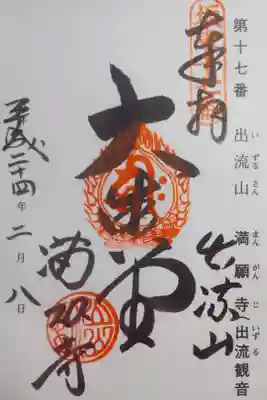 第十七番 出流山 満願寺(出流観音
いずるさん まんがんじ いずる
奉拝
出流山
大
満願寺
平成二十四年二月八日